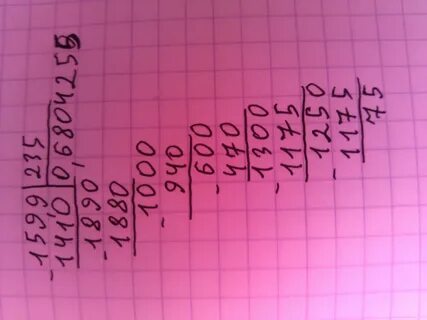 -159,9 | 235
1410 | 0,6804255
-1890
-1880
1000
- 940
600
- 470
1300
- 1175
1250
- 1175
75